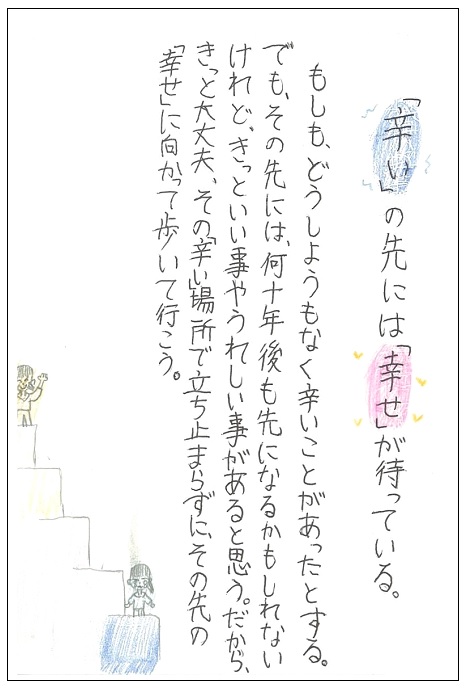 「辛い」の先には「幸せ」が待っている。
もしも、どうしようもなく辛いことがあったとする。
でも、その先には、何十年後も先になるかもしれない
けれど、きっといい事やうれしい事があると思う。だから、
きっと大丈夫、その「辛い」場所で立ち止まらずに、その先の
「幸せ」に向かって歩いて行こう。